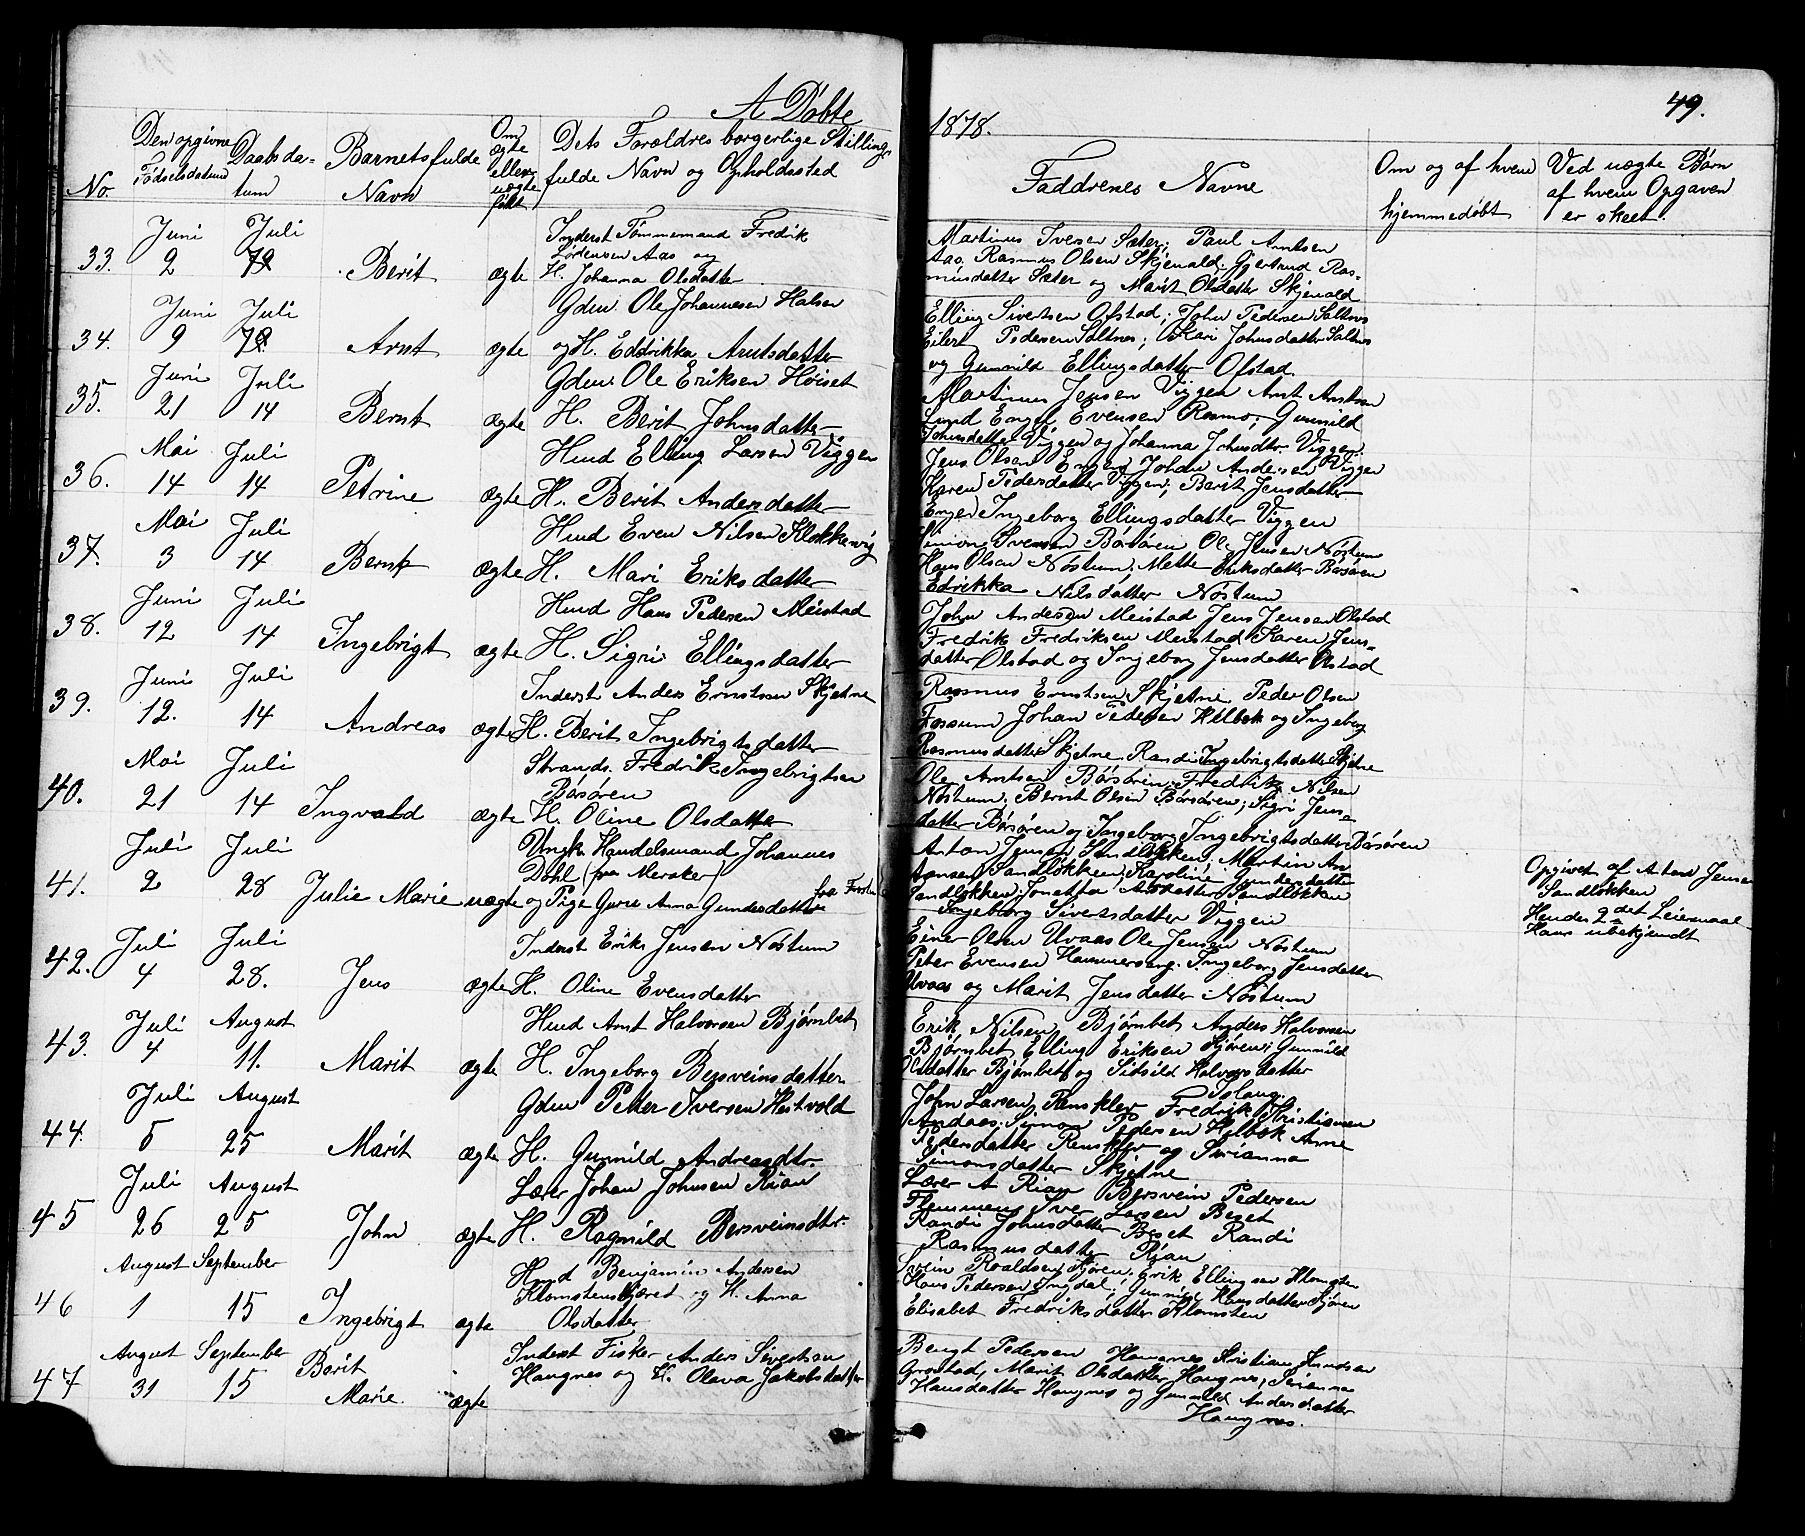 A Døbte
1878.
49.
No
Den opgivne Fødselsdatum
Daabsdatum
Barnets fulde Navn
Om ægte eller uægte født
Dets Forældres borgerlige Stilling, fulde Navn og Opholdssted
Faddrenes Navne
Om og af hvem hjemmedøbt
Ved uægte Børn af hvem Opgaven er skeet.
33. Juni 2 Juli Berit ægte
Inderst Tømmermand Fredrik
Aas og
H. Johanna Olsdatter
Martinus Iversen Sæter; Paul Arntsen
Aas. Rasmus Olsen Skjenald. Gjertrud Ras-
musdatter Sæter og Marit Olsdatter Skjenald
34. Juni 9 Juli Arnt ægte
Gdm. Ole Johannesen Halsen
og H. Eddrikka Arntsdatter
Elling Sivertsen Ofstad; John Pedersen Saltnes
Eilert Pedersen Saltnes; Kari Johnsdatter Saltnes
og Gunnild Ellingsdatter Ofstad.
35. Juni 21 Juli 14 Bernt ægte
Gdm. Ole Eriksen Høiset
H. Berit Johnsdatter
Martinus Jensen Viggen Arnt Arntsen
Lund Engel Evensen Rosmo; Gunnild
Johnsdatter Viggen og Johanna Johnsdtr. Viggen.
36. Mai 14 Juli 14 Petrine ægte
Hmd Elling Larsen Viggen
H. Berit Andersdatter
Jens Olsen Engen Johan Andersen Viggen
Karen Pedersdatter Viggen; Berit Jensdatter
Engen Ingeborg Ellingsdatter Viggen
37. Mai 3 Juli 14 Bernt ægte
Hmd Even Nilsen Klokkervig
H. Mari Eriksdatter
Simon Svensen Børsøren Ole Jensen Nøstum
Hans Olsen Nøstum; Mette Eriksdatter Børsøren
Edrikka Nilsdatter Nøstum
38. Juni 12 Juli 14 Ingebrigt ægte
Hmd Hans Pedersen Meistad
H. Sigri Ellingsdatter
John Andersen Meistad Jens Jensen Olstad
Fredrik Fredriksen Meistad Karen Jens-
datter Olstad og Ingeborg Jensdatter Olstad
39. Juni 12. Juli 14 Andreas ægte
Inderst Anders Erntsen Skjetne
H. Berit Ingebrigtsdatter
Rasmus Erntsen Skjetne Peder Olsen
Fossum Johan Pedersen Helbek og Ingeborg
Rasmusdatter Skjetne Randi Ingebrigtsdatter Skjetne
40. Mai 21 Juli 14 Ingvald ægte
Strands. Fredrik Ingebrigtsen
Børsøren
H. Oline Olsdatter
Ole Arntsen Børsøren; Fredrik Nilsen
Nøstum; Bernt Olsen Børsøren; Sigri Jens-
datter Børsøren og Ingeborg Ingebrigtsdatter Børsøren
41. Juli 2 Juli 28 Julie Marie uægte
Ungk. Handelsmand Johannes
Dahl (fra Meraker)
og Pige Anna Gundersdatter fra
Anton Jensen Sandløkken; Martin
Sandløkken; Karoline Gundersdatter
Sandløkken; Sandløkken
Ingeborg Sivertsdatter Viggen
Opgivet af Anton Jensen
Sandløkken
Hendes 2det Leiermaal
Hans ubekjendt
42. Juli 4 Juli 28. Jens ægte
Inderst Erik Jensen Nøstum
H. Oline Evensdatter
Einer Olsen Uvaas Ole Jensen Nøstum
Peter Evensen Hammersang. Ingeborg Jensdatter
Uvaas og Marit Jensdatter Nøstum
43. Juli 4 August 11. Marit ægte
Hmd Arnt Halvorsen Bjørnbet
H. Ingeborg Bersveinsdatter
Erik Nilsen Bjørnbet Anders Halvorsen
Bjørnbet Elling Eriksen Sjøren; Gunnild
Olsdatter Bjørnbet og Sidsild Halvorsdatter
44. Juli 5 August 25 Marit ægte
Gdm Peter Iversen Hestvold
H. Gunnild Andreasdtr.
John Larsen Renskler Fredrik Kristiansen
Simon Pedersen Helbek Anne
Pedersdatter Renskler og Serianna
Simonsdatter Skjetne
45 Juli 26 August 25 John ægte
Lærer Johan Johnsen Rian
H. Ragnild Bersveinsdtr.
Lærer A Rian Bersvein Pedersen
Flemmen; Iver Larsen Beset
Randi Johnsdatter Beset Randi
Rasmusdatter Rian
46 August 1 September 15 Ingebrigt ægte
Hmd Benjamin Andersen
og H. Anna
Olsdatter
Svein Roaldsen Sjøren; Erik Ellingsen Klomsten
Hans Pedersen Ingdal; Gunnild Hansdatter Sjøren
Elisabet Fredriksdatter Klomsten
47 August 31 September 15 Berit Marie. ægte
Inderst Fisker Anders Sivertsen
Haugnes og H. Olava Jakobsdatter
Bengt Pedersen Haugnes Kristian Knudsen
Grøstad, Marit Olsdatter Haugnes, Serianna
Hansdatter Haugnes og Gunnild Andersdatter
Haugnes.